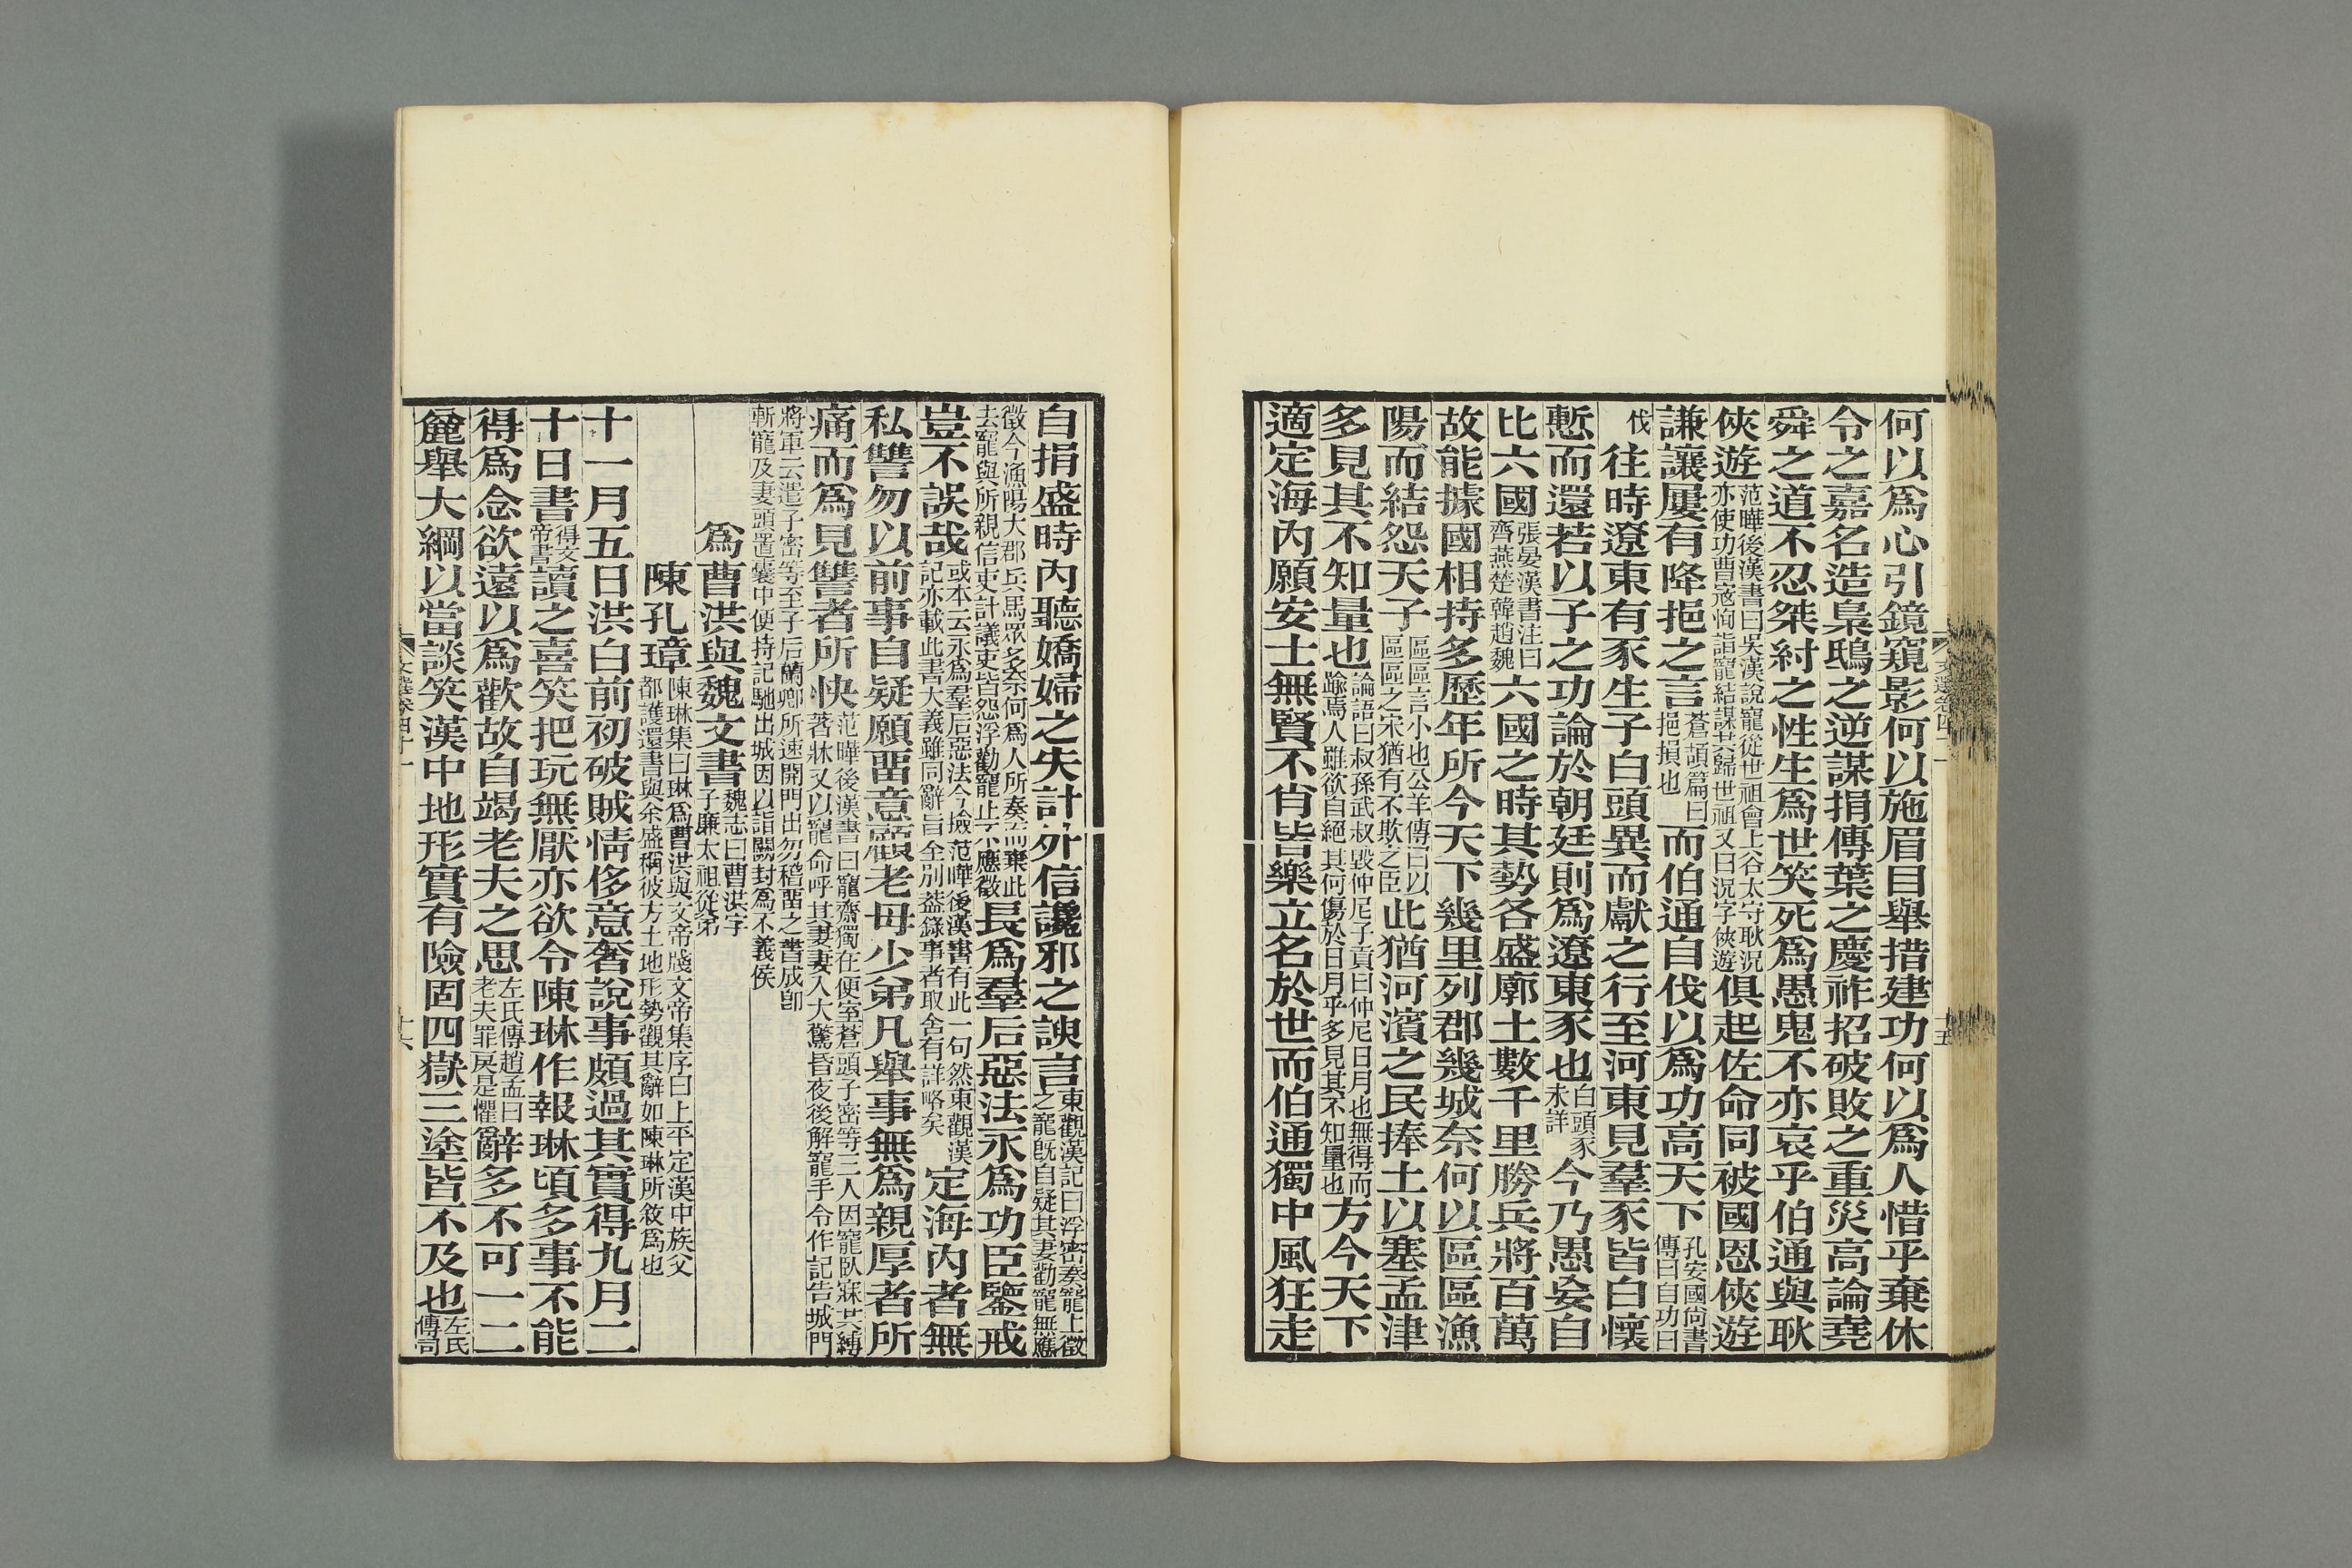 何以爲心引鏡窺影何以施眉目舉措建功何以爲人惜乎棄休
令之嘉名造梟鴟之逆謀捐傳葉之慶祚招破敗之重災高論堯
舜之道不忍桀紂之性生爲世笑死爲愚鬼不亦哀乎伯通與耿
俠遊范曄後漢書曰吳漢說寵從世祖會上谷太守耿況亦使功曹寇恂詣寵結謀共歸世祖又曰況字俠遊俱起佐命同被國恩俠遊
謙讓屢有降挹之言蒼頡篇曰挹損也而伯通自伐以爲功高天下孔安國尙書傳曰自功曰
伐往時遼東有豕生子白頭異而獻之行至河東見羣豕皆白懷
慙而還若以子之功論於朝廷則爲遼東豕也白頭豕未詳今乃愚妄自
比六國張晏漢書注曰齊燕楚韓趙魏六國之時其勢各盛廓土數千里勝兵將百萬
故能據國相持多歷年所今天下幾里列郡幾城奈何以區區漁
陽而結怨天子區區言小也公羊傳曰以區區之宋猶有不欺之臣此猶河濱之民捧土以塞孟津
多見其不知量也論語曰叔孫武叔毀仲尼子貢曰仲尼日月也無得而踰焉人雖欲自絕其何傷於日月乎多見其不知量也方今天下
適定海內願安士無賢不肖皆樂立名於世而伯通獨中風狂走
自捐盛時內聽嬌婦之失計外信讒邪之諛言東觀漢記曰浮密奏寵上徵之寵旣自疑其妻勸寵無應
徵今漁陽大郡兵馬眾多奈何爲人所奏而棄此去寵與所親信吏計議吏皆怨浮勸寵止不應徵長爲羣后惡法永爲功臣鑒戒
豈不誤哉或本云永爲羣后惡法今撿范曄後漢書有此一句然東觀漢記亦載此書大義雖同辭旨全別蓋錄事者取舍有詳略矣定海內者無
私讐勿以前事自疑願畱意顧老母少弟凡舉事無爲親厚者所
痛而爲見讐者所快范曄後漢書曰寵齋獨在便室蒼頭子密等三人因寵臥寐共縛著牀又以寵命呼其妻妻入大驚昏夜後解寵手令作記告城門
將軍云遣子密等至子后蘭卿所速開門出勿稽畱之書成卽斬寵及妻頭置囊中便持記馳出城因以詣闕封爲不義侯
爲曹洪與魏文書魏志曰曹洪字子廉太祖從弟
陳孔璋陳琳集曰琳爲曹洪與文帝牋文帝集序曰上平定漢中族父都護還書與余盛稱彼方土地形勢觀其辭如陳琳所敘爲也
十一月五日洪白前初破賊情侈意奢說事頗過其實得九月二
十日書得文帝書讀之喜笑把玩無厭亦欲令陳琳作報琳頃多事不能
得爲念欲遠以爲歡故自竭老夫之思左氏傳趙孟曰老夫罪戾是懼辭多不可一二
麄舉大綱以當談笑漢中地形實有險固四嶽三塗皆不及也左氏傳司
文選卷四十一
十六